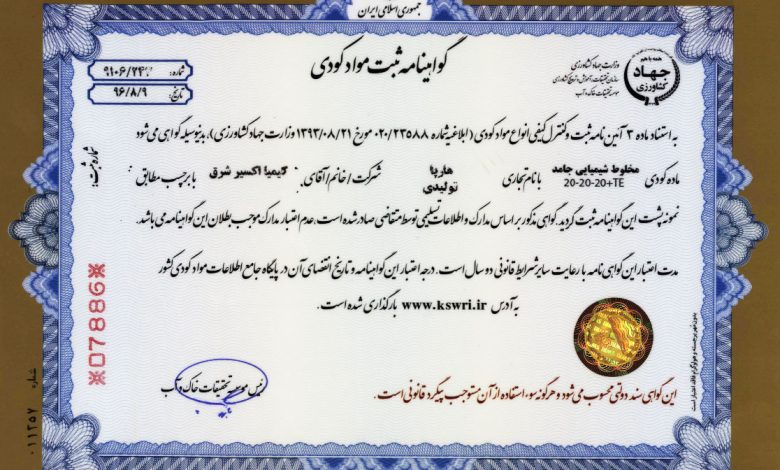 جمهوری اسلامی ایران
همه با هم
جهاد
کشاورزی
وزارت جهاد کشاورزی
سازمان تحقیقات، آموزش و ترویج کشاورزی
موسسه تحقیقات خاک و آب
گواهینامه ثبت مواد کودی
شماره:
تاریخ: ۹۶/۸/۹
به استناد ماده ۳ آئین نامه ثبت و کنترل کیفی انواع مواد کودی (ابلاغیه شماره ۰۲۰/۲۳۵۸۸ مورخ ۱۳۹۳/۰۸/۲۱ وزارت جهاد کشاورزی)، بدینوسیله گواهی می‌شود
ماده کودی مخلوط شیمیایی جامد 20-20-20+TE با نام تجاری هارپا تولیدی شرکت / خانم / آقای: کیمیا اکسیر شرق با برچسب مطابق
نمونه پشت این گواهینامه ثبت گردید. گواهی مذکور بر اساس مدارک و اطلاعات تسلیمی توسط متقاضی صادر شده است. عدم اعتبار مدارک موجب بطلان این گواهینامه می باشد.
مدت اعتبار این گواهی نامه با رعایت سایر شرایط قانونی دو سال است. درجه اعتبار این گواهینامه و تاریخ انقضای آن در پایگاه جامع اطلاعات مواد کودی کشور
به آدرس www.kswri.ir بارگذاری شده است.
رئیس موسسه تحقیقات خاک و آب
این گواهی سند دولتی محسوب می شود و هرگونه سوء استفاده از آن مستوجب پیگرد قانونی است.
شماره ثبت:
※07886※
شماره ۰۱۱۳۵۷
بدون مهر برجسته و هولوگرام فاقد اعتبار است